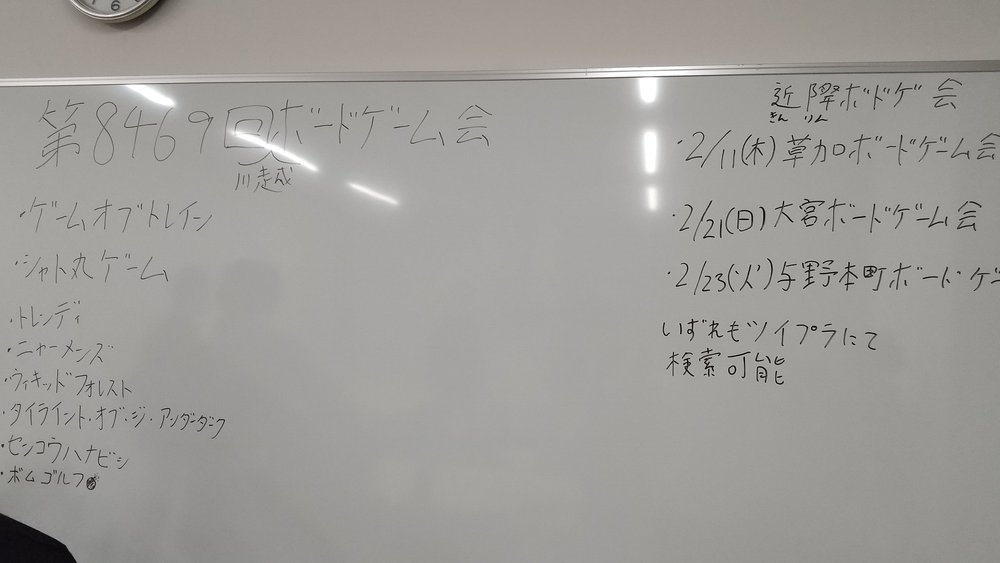 第8469回ボードゲーム会
川越
・ゲームオブトレイン
・シャト丸ゲーム
・トレンディ
・ニャーメンズ
・ウィキッドフォレスト
・タイライント・オブ・ジ・アンダーダーク
・センコウハナビシ
・ボムゴルフ
近隣ボドゲ会
きん りん
・2/11(木)草加ボードゲーム会
・2/21(日)大宮ボードゲーム会
・2/23(火)与野本町ボードゲ
いずれもツイプラにて
検索可能